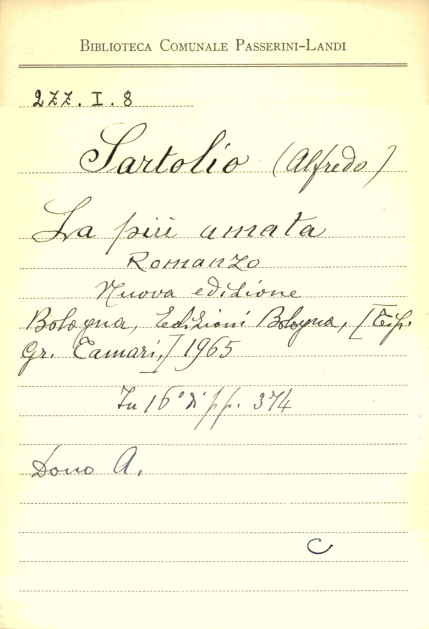 BIBLIOTECA COMUNALE PASSERINI-LANDI
2ZZ. I. 8
Sartolio (Alfredo)
La più amata
Romanzo
Nuova edizione
Bologna, Edizioni Bologna, [Tip.
Gr. Tamari,] 1965
In 16° di pp. 374
Dono A.
C